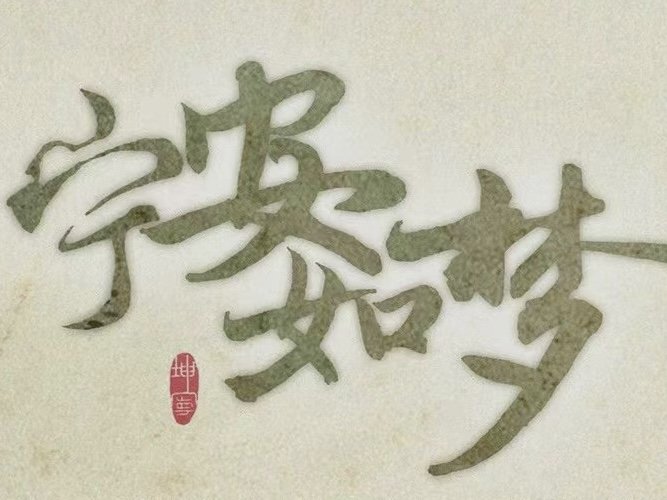 宁安如梦
坤宁